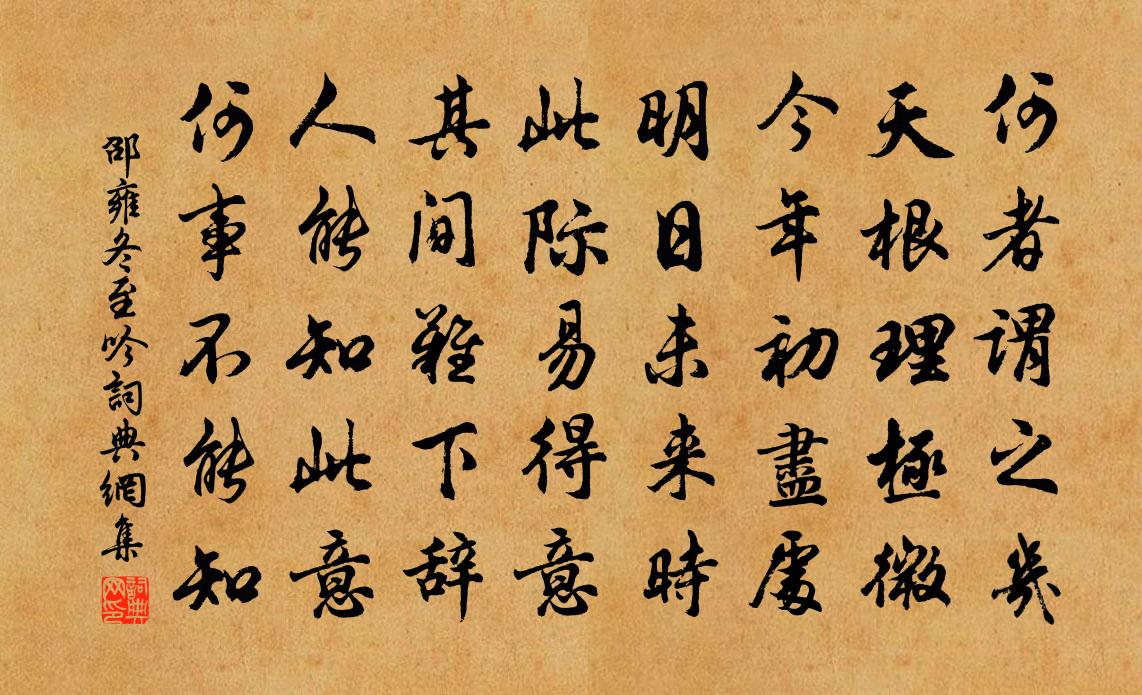 何者谓之幾
天根理極微
今年初盡處
明日未来時
此际易得意
其间難下辞
人能知此意
何事不能知
邵雍冬至吟詞典網集
詞典网印